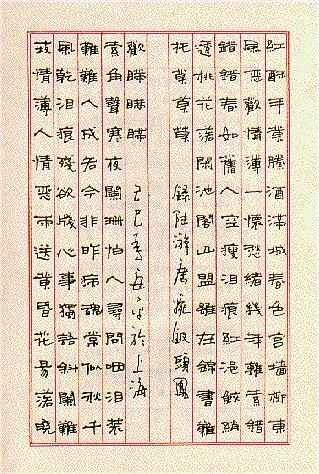 红酥手黄縢酒滿城春色宫墙柳東
風恶歡情薄一懷愁緒幾年離索錯
錯錯春如舊人空瘦泪痕紅浥鲛綃
透桃花落閑池閣山盟雖在錦書難
托莫莫莫 錄陸游唐琬釵頭鳳
世情薄人情恶雨送黄昏花易落曉
風乾泪痕殘欲牋心事獨語斜闌難
難難人成各今非昨病魂常似秋千
索角聲寒夜闌珊怕人尋問咽泪装
歡瞞瞞瞞 己巳春 於上海